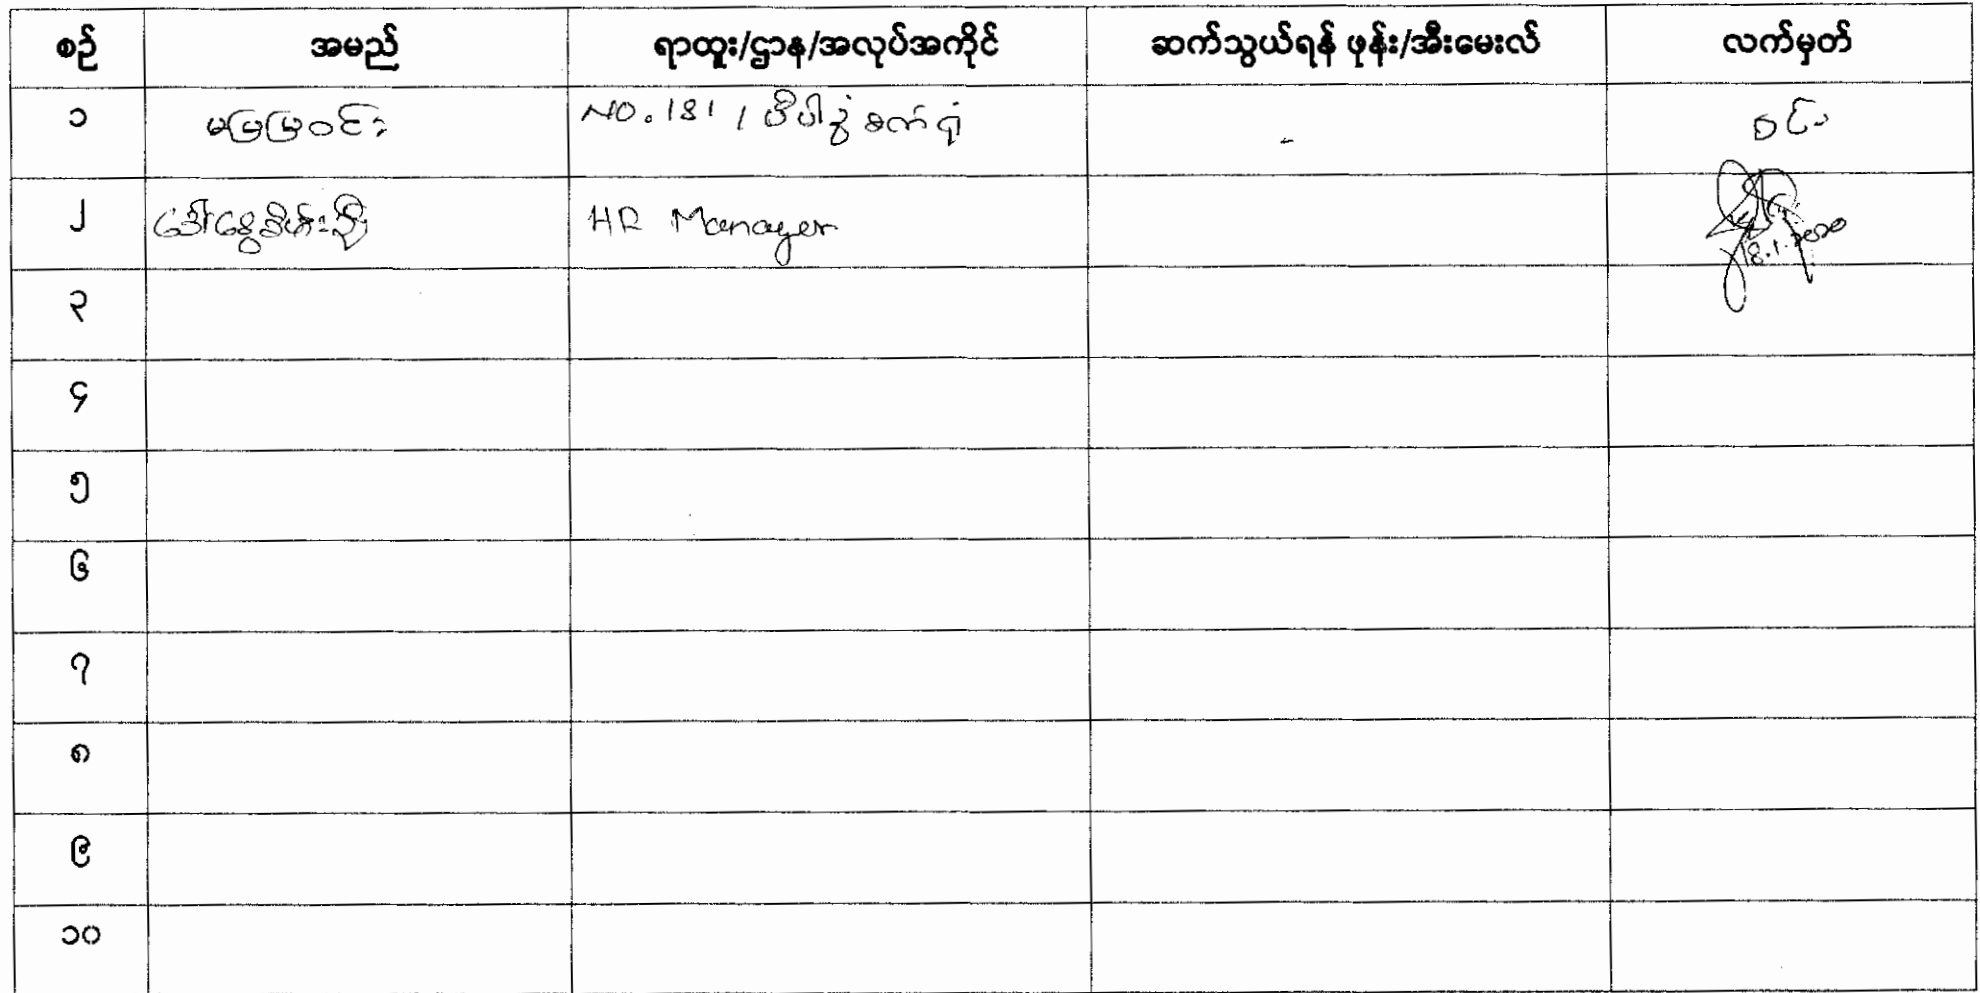 စဉ် အမည် ရာထူး/ဌာန/အလုပ်အကိုင် ဆက်သွယ်ရန် ဖုန်း/အီးမေးလ် လက်မှတ်
၁ မမြမြဝင်း NO. 181 / စက်ရုံ - ဝင်း
၂ ဒေါ် HR Manager 18.1.2020
၃
၄
၅
၆
၇
၈
၉
၁၀